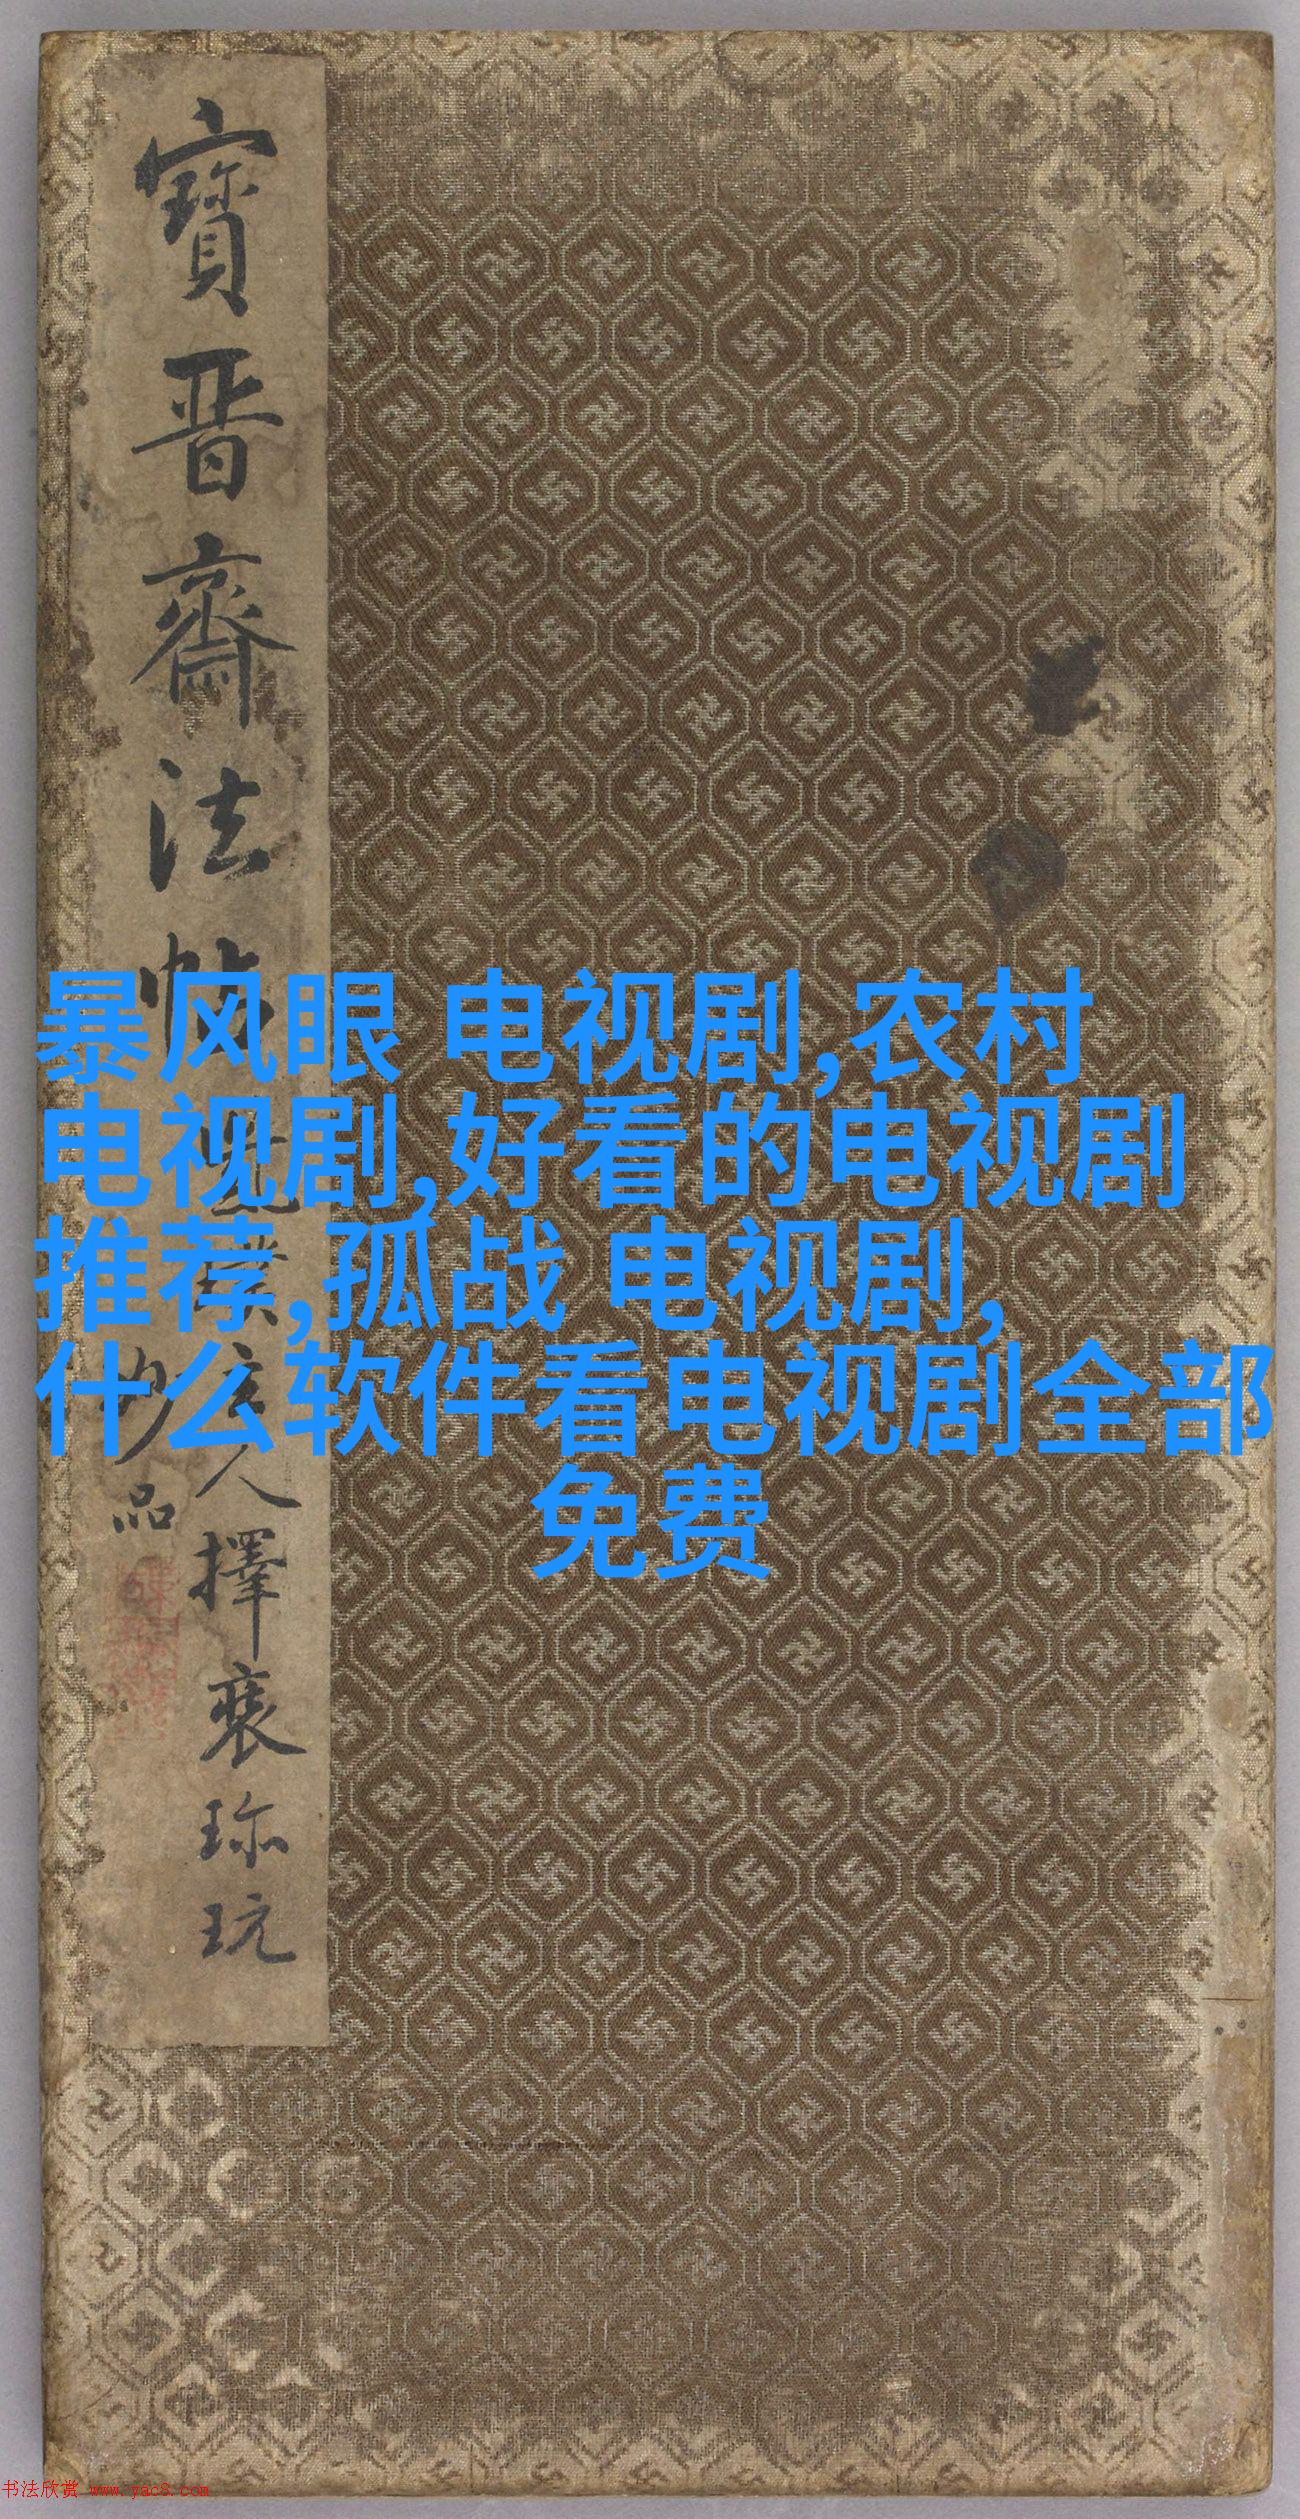 寶晉齋法帖
人擇裘珎玩
妙品
暴风眼 电视剧,农村
电视剧,好看的电视剧
推荐,孤战 电视剧,
什么软件看电视剧全部
免费
书法欣赏 www.yac8.com